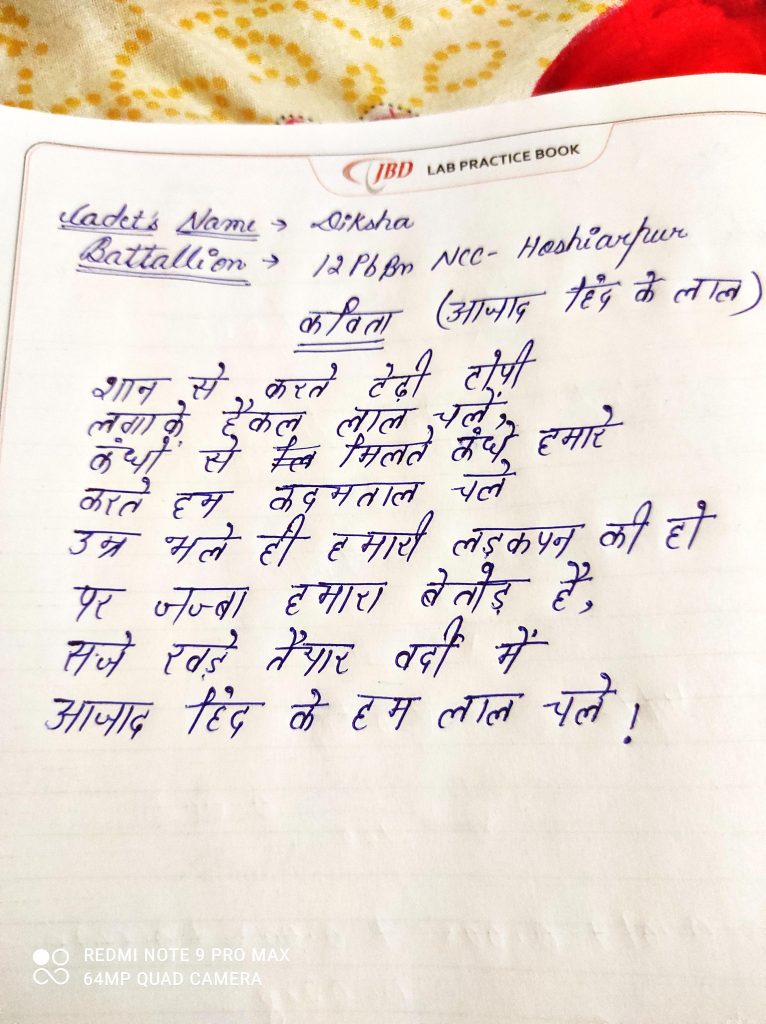 JBD LAB PRACTICE BOOK
Cadet's Name → Diksha
Battallion → 12 Pb Bn NCC- Hoshiarpur
कविता (आजाद हिंद के लाल)
शान से करते टेढ़ी टोपी
लगाके हैकल लाल चलें,
कंधों से मिलते कंधे हमारे
करते हम कदमताल चले
उम्र भले ही हमारी लड़कपन की हो
पर जज्बा हमारा बेतोड़ है,
सजे खड़े तैयार वर्दी में
आजाद हिंद के हम लाल चले!
REDMI NOTE 9 PRO MAX
64MP QUAD CAMERA